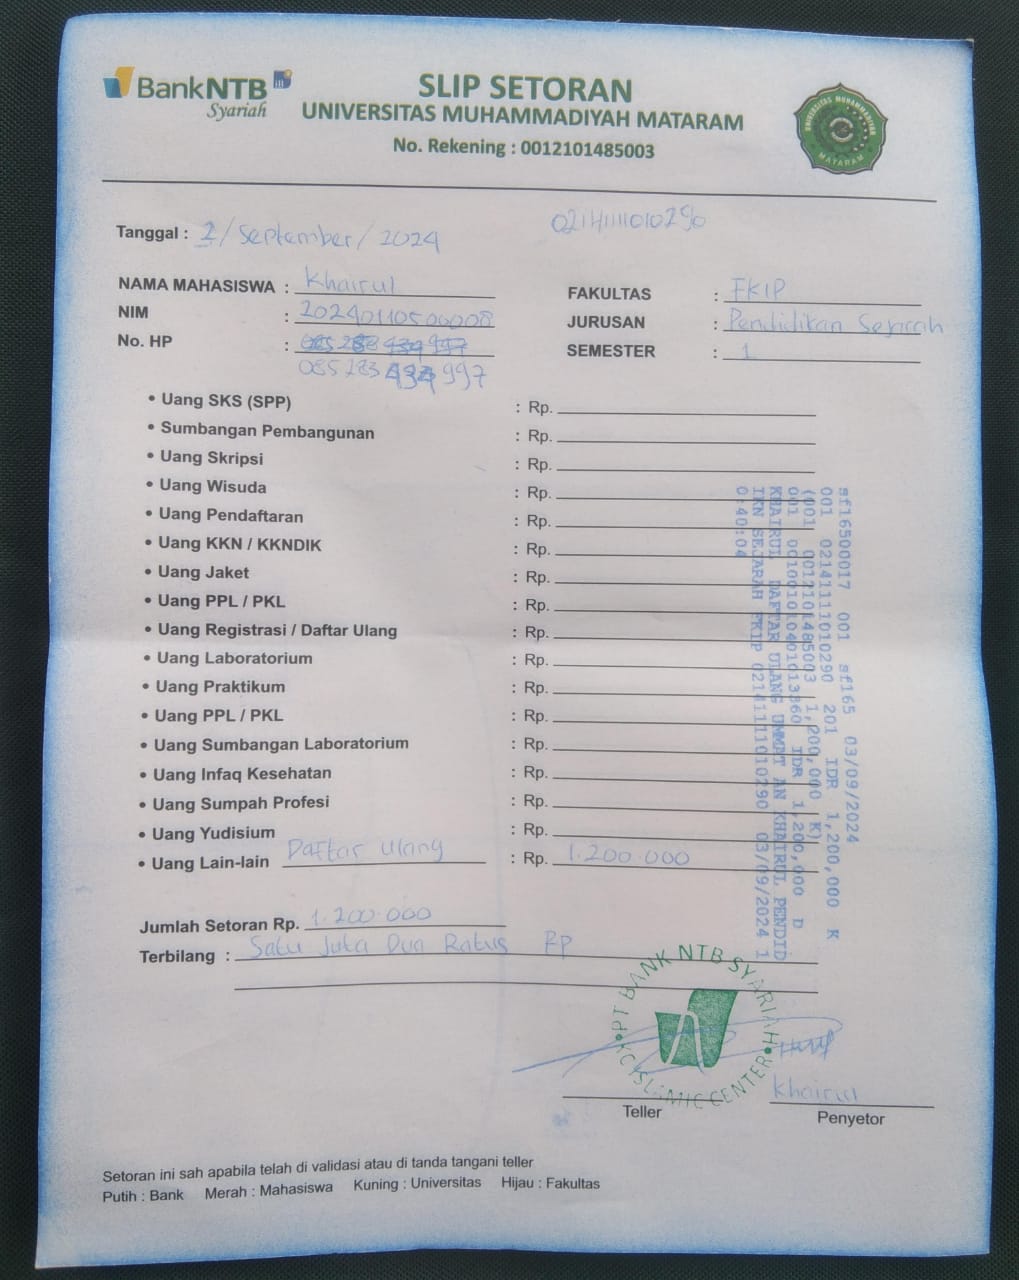 BankNTB
Syariah
SLIP SETORAN
UNIVERSITAS MUHAMMADIYAH MATARAM
No. Rekening : 0012101485003
UNIVERSITAS MUHAMMADIYAH
MATARAM
021411111010290
Tanggal : 2/September/2024
NAMA MAHASISWA : Khairul
NIM : 20240110500008
No. HP :
085 283 434 997
FAKULTAS : FKIP
JURUSAN : Pendidikan Sejarah
SEMESTER : 1
• Uang SKS (SPP) : Rp.
• Sumbangan Pembangunan : Rp.
• Uang Skripsi : Rp.
• Uang Wisuda : Rp.
• Uang Pendaftaran : Rp.
• Uang KKN / KKNDIK : Rp.
• Uang Jaket : Rp.
• Uang PPL / PKL : Rp.
• Uang Registrasi / Daftar Ulang : Rp.
• Uang Laboratorium : Rp.
• Uang Praktikum : Rp.
• Uang PPL / PKL : Rp.
• Uang Sumbangan Laboratorium : Rp.
• Uang Infaq Kesehatan : Rp.
• Uang Sumpah Profesi : Rp.
• Uang Yudisium : Rp.
• Uang Lain-lain Daftar ulang : Rp. 1.200.000
sf16500017 001 sf165 03/09/2024
001 021411111010290 201 IDR 1,200,000 K
(001 0012101485003 1,200,000 K)
001 001001010401013360 IDR 1,200,000 D
KHAIRUL DAFTAR ULANG UMMAT AN KHAIRUL PENDID
IKN SEJARAH FKIP 021411111010290 03/09/2024 1
0:40:04
Jumlah Setoran Rp. 1.200.000
Terbilang : Satu Juta Dua Ratus RP
PT BANK NTB SYARIAH
KC ISLAMIC CENTER
Khairul
Teller
Penyetor
Setoran ini sah apabila telah di validasi atau di tanda tangani teller
Putih : Bank Merah : Mahasiswa Kuning : Universitas Hijau : Fakultas